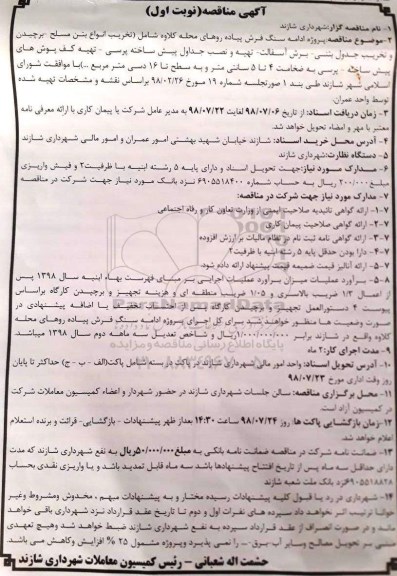 آگهی مناقصه(نوبت اول)
۱- نام مناقصه گزار:شهرداری شازند
۲-موضوع مناقصه پروژه ادامه سنگ فرش پیاده روهای محله کلاوه شامل (تخریب انواع بتن مسلح -برچیدن
و تخریب جدول بتنی- برش آسفالت- تهیه و نصب جداول پیش ساخته پرسی - تهیه کف پوش های
پیش ساخته - پرسی به ضخامت ۴ تا ۵ سانتی متر و به سطح تا ۱۶ دسی متر مربع ...)با موافقت شورای
اسلامی شهر شازند طی بند ۱ صورتجلسه شماره ۱۹ مورخ ۹۸/۰۲/۲۶ براساس نقشه و مشخصات تهیه شده
توسط واحد عمران.
۳- زمان دریافت اسناد: از تاریخ ۹۸/۰۷/۰۶ لغایت ۹۸/۰۷/۲۲ به مدیر عامل شرکت یا پیمان کاری با ارائه معرفی نامه
معتبر با مهر و امضاء تحویل خواهد شد.
۴- آدرس محل خرید اسناد: شازند خیابان شهید بهشتی امور عمران و امور مالی شهرداری شازند
۵- دستگاه نظارت:شهرداری شازند
۶- مدارک مورد نیاز:جهت تحویل اسناد و دارای پایه ۵ رشته ابنیه با ظرفیت۲ و فیش واریزی
مبلغ ۲۰۰/۰۰۰ ریال به حساب شماره ۶۹۰۵۵۱۸۴۰۰ نزد بانک مورد نیاز جهت شرکت در مناقصه
۷- مدارک مورد نیاز جهت شرکت در مناقصه:
۷-۱- ارائه گواهی تائیدیه صلاحیت ایمنی از وزارت تعاون کار و رفاه اجتماعی
۷-۲- ارائه گواهی صلاحیت پیمان کاری
۷-۳- ارائه گواهی نامه ثبت نام در نظام مالیات بر ارزش افزوده
۷-۴- دارا بودن حداقل پایه ۵ رشته ابنیه با ظرفیت۲
۷-۵- ارائه آنالیز قیمت ضمیمه قیمت پیشنهاد ارائه داده شود.
۸- برآورد عملیات میزان برآورد عملیات اجرایی بر مبنای فهرست بهاء ابنیه سال ۱۳۹۸ پس
از اعمال ۱/۳ ضریب بالاسری و ۱/۰۵ ضریب منطقه ای و هزینه تجهیز و برچیدن کارگاه براساس
پیوست ۴ دستورالعمل تجهیز و برچیدن کارگاه
صورت وضعیت ها منظور خواهید شد برای کل اجرای پروژه ادامه سنگ فرش پیاده روهای محله
کلاوه واقع در شازند برابر ریال و شاخص تعدیل سه ماهه دوم سال ۱۳۹۸ میباشد.
۹- مدت اجرای کار: ۲ ماه
۱۰- آدرس تحویل اسناد: واحد امور مالی شهرداری شازند در پاکت در بسته شامل پاکت(الف - ب - ج) حداکثر تا پایان
روز وقت اداری مورخ ۹۸/۰۷/۲۳
۱۱- محل برگزاری مناقصه: سالن جلسات شهرداری شازند در حضور شهردار و اعضاء کمیسیون معاملات شرکت
در کمیسیون آزاد است
۱۲- زمان بازگشایی پاکت ها: روز ۹۸/۰۷/۲۴ ساعت ۱۴:۳۰ بعداز ظهر پیشنهادات - بازگشایی- قرائت و برنده استعلام
اعلام خواهد شد.
۱۳- ضمانت نامه شرکت در مناقصه ضمانت نامه بانکی به مبلغ۵۰/۰۰۰/۰۰۰ریال به نفع شهرداری شازند که مدت
دارای حداقل سه ماه پس از تاریخ افتتاح پیشنهادها باشد سه ماه قابل تمدید باشد و یا واریزی نقدی بحساب
نزد بانک ملت شعبه شازند
۱۴- شهرداری در رد یا قبول کلیه پیشنهادات رسیده مختار و به پیشنهادات مبهم ، مخدوش ومشروط وغیر
خوانا ترتیب اثر نخواهد داد سپرده های نفرات اول و دوم تا تاریخ عقد قرارداد نزد شهرداری باقی خواهد
مانند و در صورت انصراف از عقد قرارداد سپرده به نفع شهرداری شازند ضبط خواهد شد وهیچ تعهدی
مبنی بر تحویل مصالح وسایر آب-برق-... را نمی پذیرد وپروژه مشمول ۲۵ % افزایش وکاهش می باشد.
حشمت اله شعبانی - رئیس کمیسیون معاملات شهرداری شازند